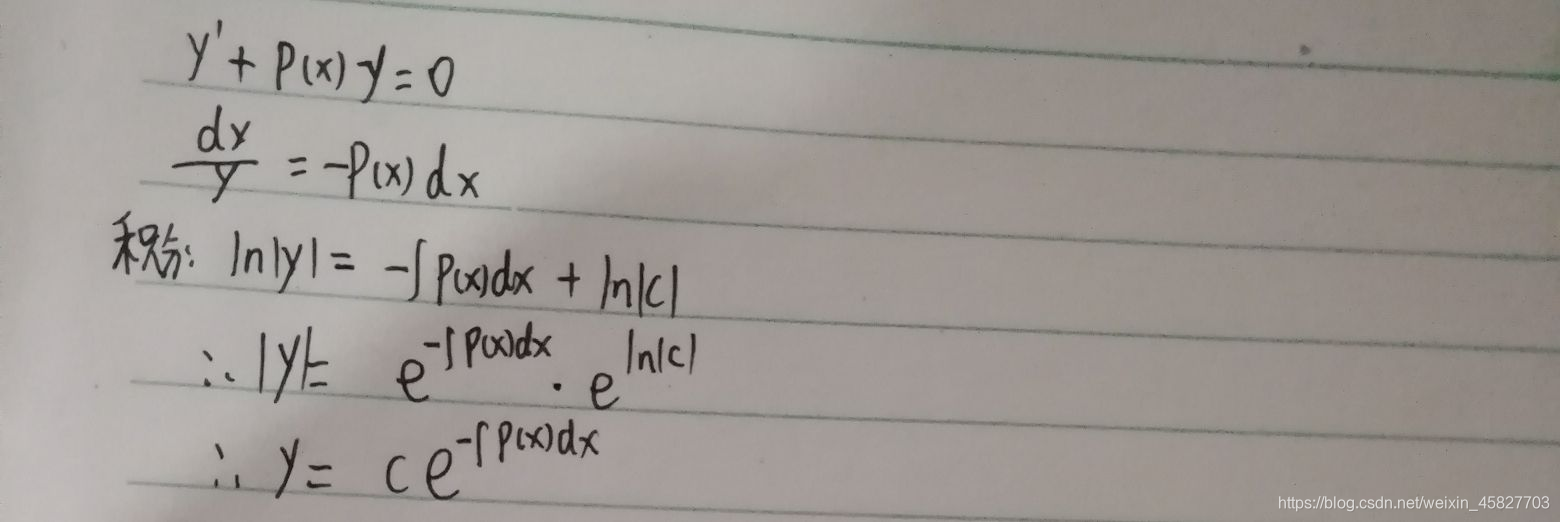 y' + P(x) y = 0
dy/y = -P(x) dx
积分: ln|y| = -∫ P(x)dx + ln|c|
∴ |y| = e^{-∫P(x)dx} · e^{ln|c|}
∴ y = c e^{-∫P(x)dx}
https://blog.csdn.net/weixin_45827703